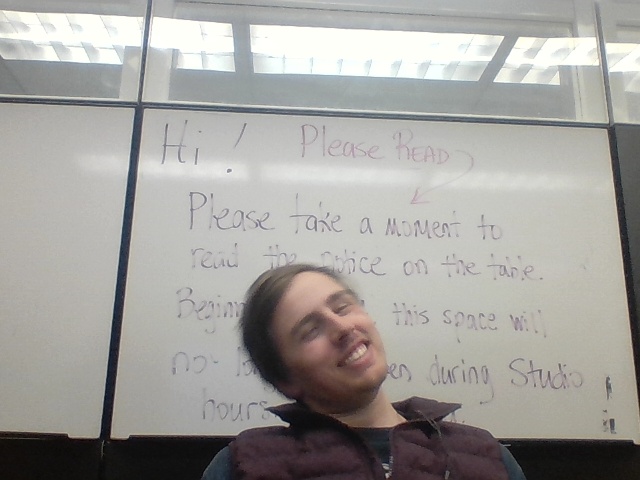 Hi! Please READ
Please take a moment to
read the notice on the table.
this space will
during Studio
hours